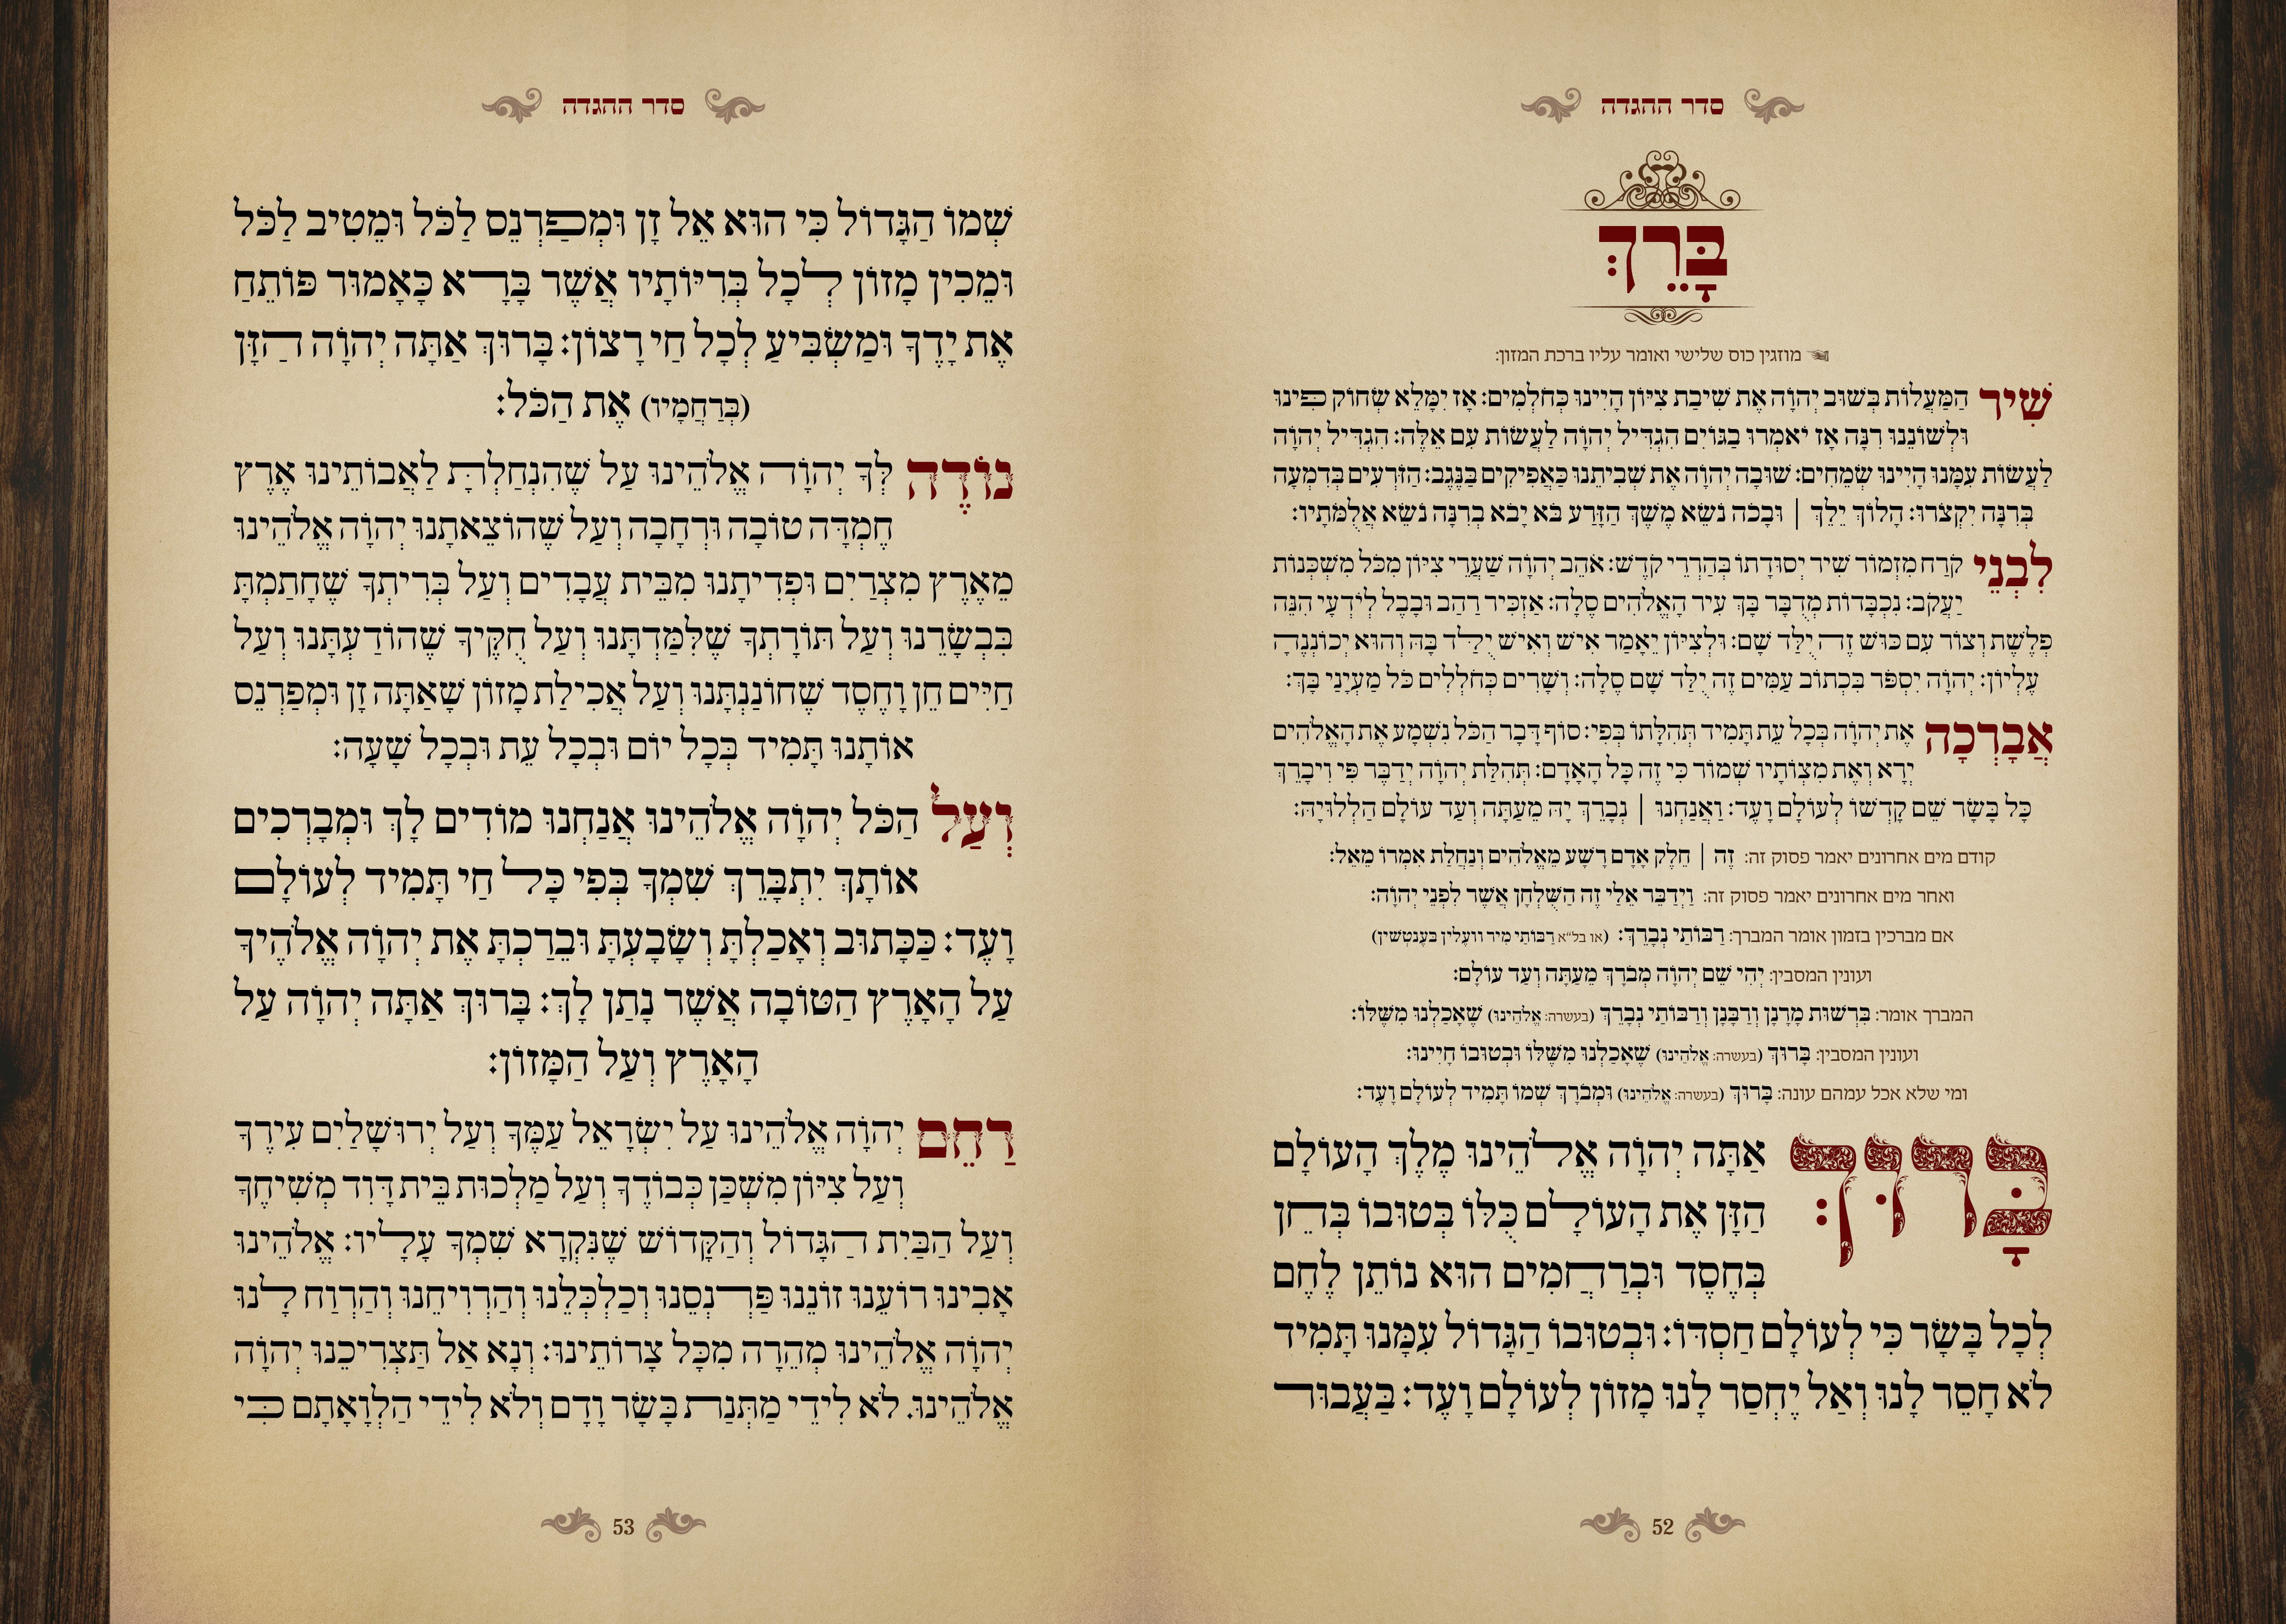 סדר ההגדה
בָּרֵךְ
מוזגין כוס שלישי ואומר עליו ברכת המזון:
שִׁיר הַמַּעֲלוֹת בְּשׁוּב יְהוָֹה אֶת שִׁיבַת צִיּוֹן הָיִינוּ כְּחֹלְמִים: אָז יִמָּלֵא שְׂחוֹק פִּינוּ
וּלְשׁוֹנֵנוּ רִנָּה אָז יֹאמְרוּ בַגּוֹיִם הִגְדִּיל יְהוָֹה לַעֲשׂוֹת עִם אֵלֶּה: הִגְדִּיל יְהוָֹה
לַעֲשׂוֹת עִמָּנוּ הָיִינוּ שְׂמֵחִים: שׁוּבָה יְהוָֹה אֶת שְׁבִיתֵנוּ כַּאֲפִיקִים בַּנֶּגֶב: הַזֹּרְעִים בְּדִמְעָה
בְּרִנָּה יִקְצֹרוּ: הָלוֹךְ יֵלֵךְ | וּבָכֹה נֹשֵׂא מֶשֶׁךְ הַזָּרַע בֹּא יָבֹא בְרִנָּה נֹשֵׂא אֲלֻמֹּתָיו:
לִבְנֵי קֹרַח מִזְמוֹר שִׁיר יְסוּדָתוֹ בְּהַרְרֵי קֹדֶשׁ: אֹהֵב יְהוָֹה שַׁעֲרֵי צִיּוֹן מִכֹּל מִשְׁכְּנוֹת
יַעֲקֹב: נִכְבָּדוֹת מְדֻבָּר בָּךְ עִיר הָאֱלֹהִים סֶלָה: אַזְכִּיר רַהַב וּבָבֶל לְיֹדְעָי הִנֵּה
פְלֶשֶׁת וְצוֹר עִם כּוּשׁ זֶה יֻלַּד שָׁם: וּלְצִיּוֹן יֵאָמַר אִישׁ וְאִישׁ יֻלַּד בָּהּ וְהוּא יְכוֹנְנֶהָ
עֶלְיוֹן: יְהוָֹה יִסְפֹּר בִּכְתוֹב עַמִּים זֶה יֻלַּד שָׁם סֶלָה: וְשָׁרִים כְּחֹלְלִים כֹּל מַעְיָנַי בָּךְ:
אֲבָרְכָה אֶת יְהוָֹה בְּכָל עֵת תָּמִיד תְּהִלָּתוֹ בְּפִי: סוֹף דָּבָר הַכֹּל נִשְׁמָע אֶת הָאֱלֹהִים
יְרָא וְאֶת מִצְוֹתָיו שְׁמוֹר כִּי זֶה כָּל הָאָדָם: תְּהִלַּת יְהוָֹה יְדַבֶּר פִּי וִיבָרֵךְ
כָּל בָּשָׂר שֵׁם קָדְשׁוֹ לְעוֹלָם וָעֶד: וַאֲנַחְנוּ | נְבָרֵךְ יָהּ מֵעַתָּה וְעַד עוֹלָם הַלְלוּיָהּ:
קודם מים אחרונים יאמר פסוק זה: זֶה | חֵלֶק אָדָם רָשָׁע מֵאֱלֹהִים וְנַחֲלַת אִמְרוֹ מֵאֵל:
ואחר מים אחרונים יאמר פסוק זה: וַיְדַבֵּר אֵלַי זֶה הַשֻּׁלְחָן אֲשֶׁר לִפְנֵי יְהוָֹה:
אם מברכין בזמון אומר המברך: רַבּוֹתַי נְבָרֵךְ: (או בל״א רַבּוֹתַי מִיר וועֶלין בּעֶנטְשׁין)
ועונין המסבין: יְהִי שֵׁם יְהוָֹה מְבֹרָךְ מֵעַתָּה וְעַד עוֹלָם:
המברך אומר: בִּרְשׁוּת מָרָנָן וְרַבָּנָן וְרַבּוֹתַי נְבָרֵךְ (בעשרה: אֱלֹהֵינוּ) שֶׁאָכַלְנוּ מִשֶּׁלּוֹ:
ועונין המסבין: בָּרוּךְ (בעשרה: אֱלֹהֵינוּ) שֶׁאָכַלְנוּ מִשֶּׁלּוֹ וּבְטוּבוֹ חָיִינוּ:
ומי שלא אכל עמהם עונה: בָּרוּךְ (בעשרה: אֱלֹהֵינוּ) וּמְבֹרָךְ שְׁמוֹ תָּמִיד לְעוֹלָם וָעֶד:
בָּרוּךְ אַתָּה יְהוָֹה אֱלֹהֵינוּ מֶלֶךְ הָעוֹלָם
הַזָּן אֶת הָעוֹלָם כֻּלּוֹ בְּטוּבוֹ בְּחֵן
בְּחֶסֶד וּבְרַחֲמִים הוּא נוֹתֵן לֶחֶם
לְכָל בָּשָׂר כִּי לְעוֹלָם חַסְדּוֹ: וּבְטוּבוֹ הַגָּדוֹל עִמָּנוּ תָּמִיד
לֹא חָסֵר לָנוּ וְאַל יֶחְסַר לָנוּ מָזוֹן לְעוֹלָם וָעֶד: בַּעֲבוּר
52
סדר ההגדה
שְׁמוֹ הַגָּדוֹל כִּי הוּא אֵל זָן וּמְפַרְנֵס לַכֹּל וּמֵטִיב לַכֹּל
וּמֵכִין מָזוֹן לְכָל בְּרִיּוֹתָיו אֲשֶׁר בָּרָא כָּאָמוּר פּוֹתֵחַ
אֶת יָדֶךָ וּמַשְׂבִּיעַ לְכָל חַי רָצוֹן: בָּרוּךְ אַתָּה יְהוָֹה הַזָּן
(בְּרַחֲמָיו) אֶת הַכֹּל:
נוֹדֶה לְּךָ יְהוָֹה אֱלֹהֵינוּ עַל שֶׁהִנְחַלְתָּ לַאֲבוֹתֵינוּ אֶרֶץ
חֶמְדָּה טוֹבָה וּרְחָבָה וְעַל שֶׁהוֹצֵאתָנוּ יְהוָֹה אֱלֹהֵינוּ
מֵאֶרֶץ מִצְרַיִם וּפְדִיתָנוּ מִבֵּית עֲבָדִים וְעַל בְּרִיתְךָ שֶׁחָתַמְתָּ
בִּבְשָׂרֵנוּ וְעַל תּוֹרָתְךָ שֶׁלִּמַּדְתָּנוּ וְעַל חֻקֶּיךָ שֶׁהוֹדַעְתָּנוּ וְעַל
חַיִּים חֵן וָחֶסֶד שֶׁחוֹנַנְתָּנוּ וְעַל אֲכִילַת מָזוֹן שָׁאַתָּה זָן וּמְפַרְנֵס
אוֹתָנוּ תָּמִיד בְּכָל יוֹם וּבְכָל עֵת וּבְכָל שָׁעָה:
וְעַל הַכֹּל יְהוָֹה אֱלֹהֵינוּ אֲנַחְנוּ מוֹדִים לָךְ וּמְבָרְכִים
אוֹתָךְ יִתְבָּרֵךְ שִׁמְךָ בְּפִי כָּל חַי תָּמִיד לְעוֹלָם
וָעֶד: כַּכָּתוּב וְאָכַלְתָּ וְשָׂבָעְתָּ וּבֵרַכְתָּ אֶת יְהוָֹה אֱלֹהֶיךָ
עַל הָאָרֶץ הַטּוֹבָה אֲשֶׁר נָתַן לָךְ: בָּרוּךְ אַתָּה יְהוָֹה עַל
הָאָרֶץ וְעַל הַמָּזוֹן:
רַחֵם יְהוָֹה אֱלֹהֵינוּ עַל יִשְׂרָאֵל עַמֶּךָ וְעַל יְרוּשָׁלַיִם עִירֶךָ
וְעַל צִיּוֹן מִשְׁכַּן כְּבוֹדֶךָ וְעַל מַלְכוּת בֵּית דָּוִד מְשִׁיחֶךָ
וְעַל הַבַּיִת הַגָּדוֹל וְהַקָּדוֹשׁ שֶׁנִּקְרָא שִׁמְךָ עָלָיו: אֱלֹהֵינוּ
אָבִינוּ רוֹעֵנוּ זוֹנֵנוּ פַּרְנְסֵנוּ וְכַלְכְּלֵנוּ וְהַרְוִיחֵנוּ וְהַרְוַח לָנוּ
יְהוָֹה אֱלֹהֵינוּ מְהֵרָה מִכָּל צָרוֹתֵינוּ: וְנָא אַל תַּצְרִיכֵנוּ יְהוָֹה
אֱלֹהֵינוּ. לֹא לִידֵי מַתְּנַת בָּשָׂר וָדָם וְלֹא לִידֵי הַלְוָאָתָם כִּי
53